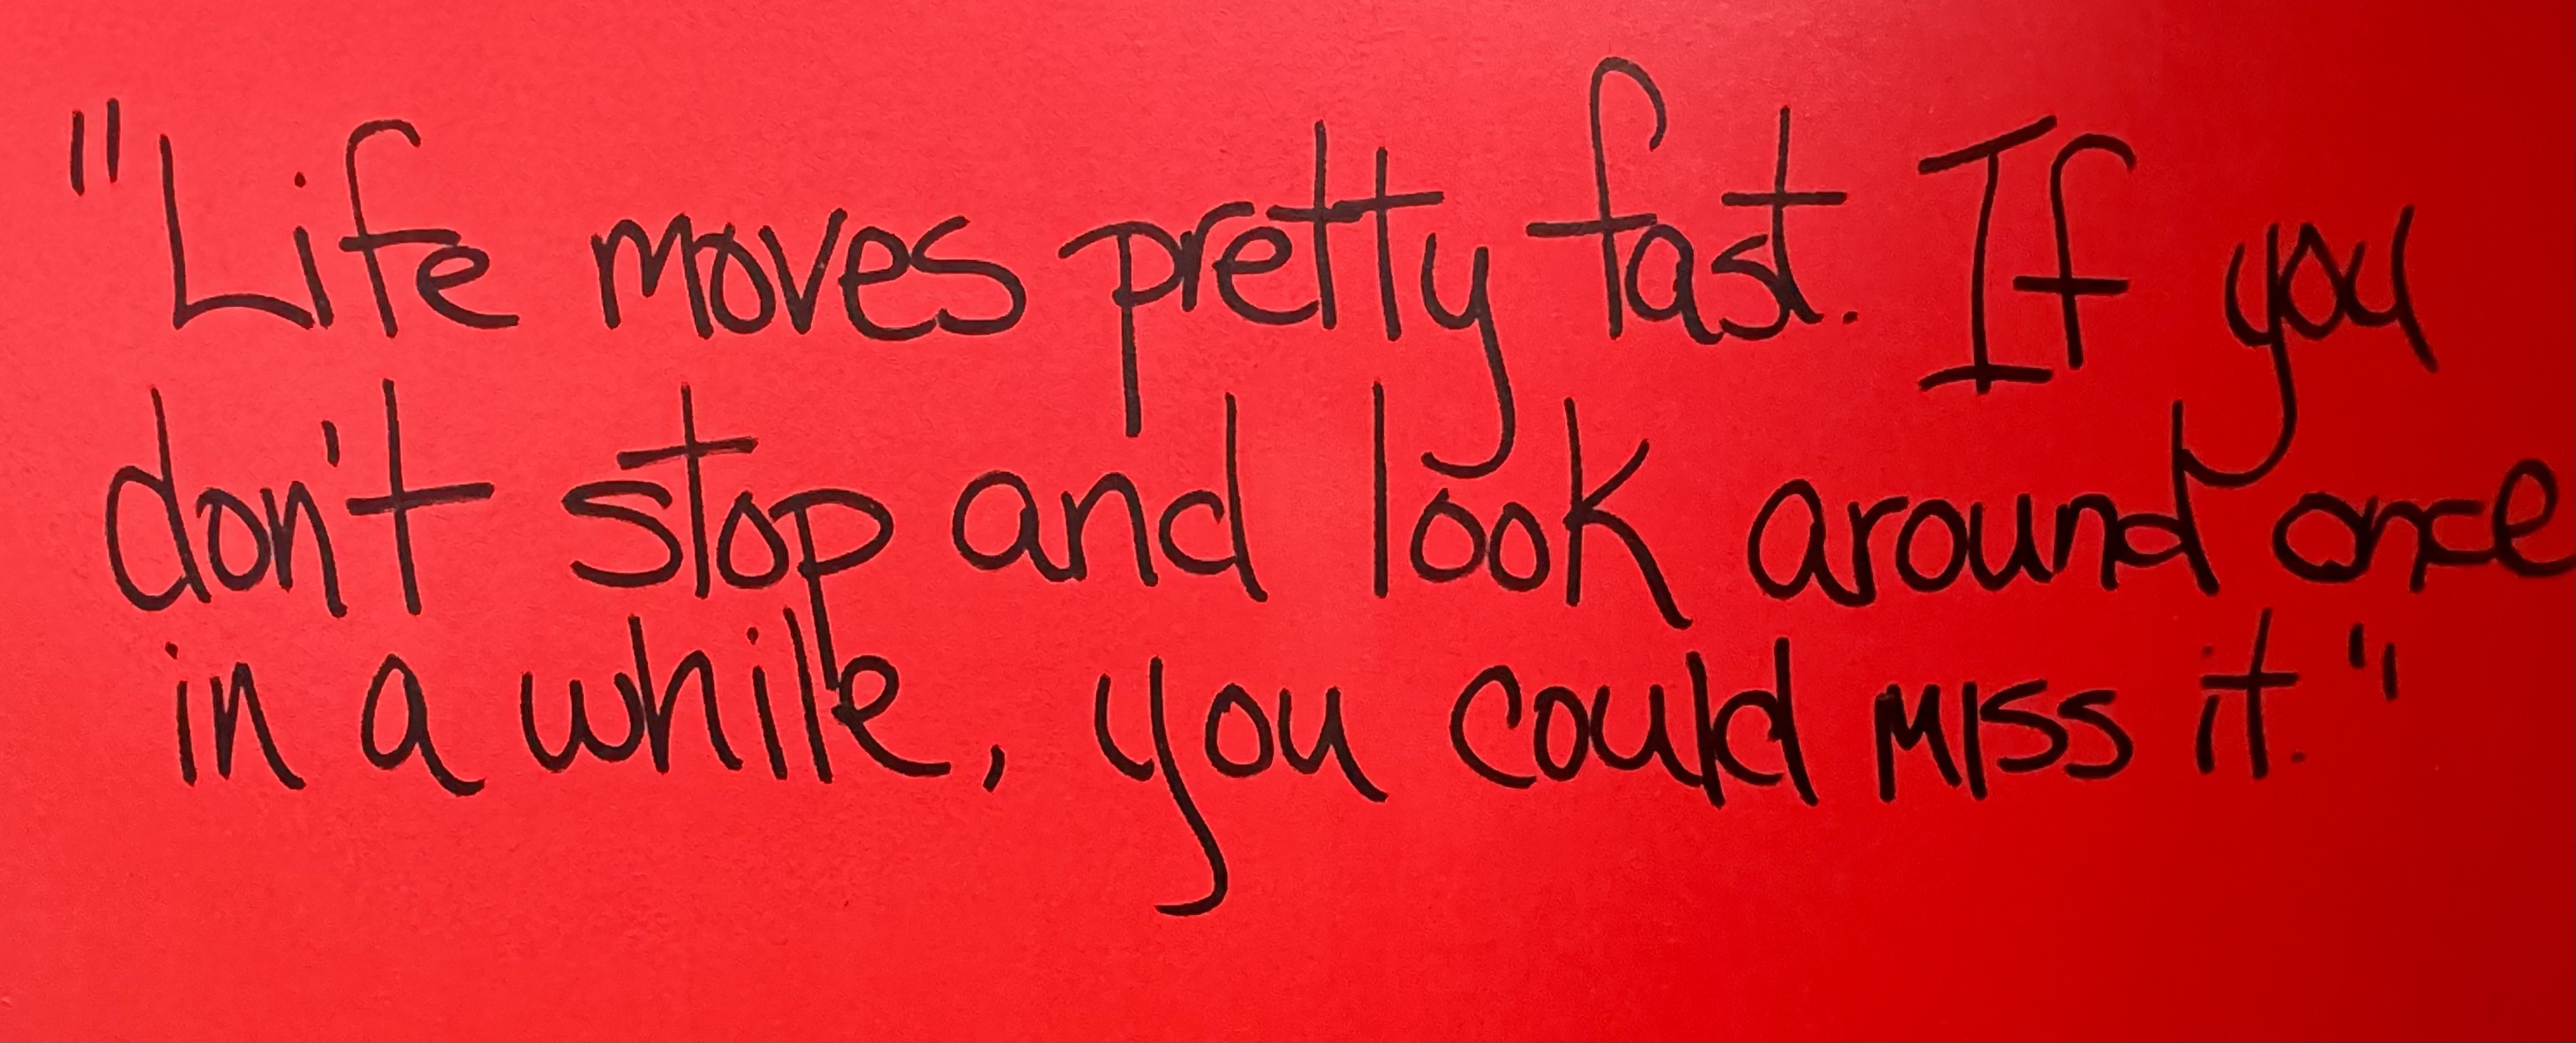 "Life moves pretty fast. If you
don't stop and look around once
in a while, you could miss it."